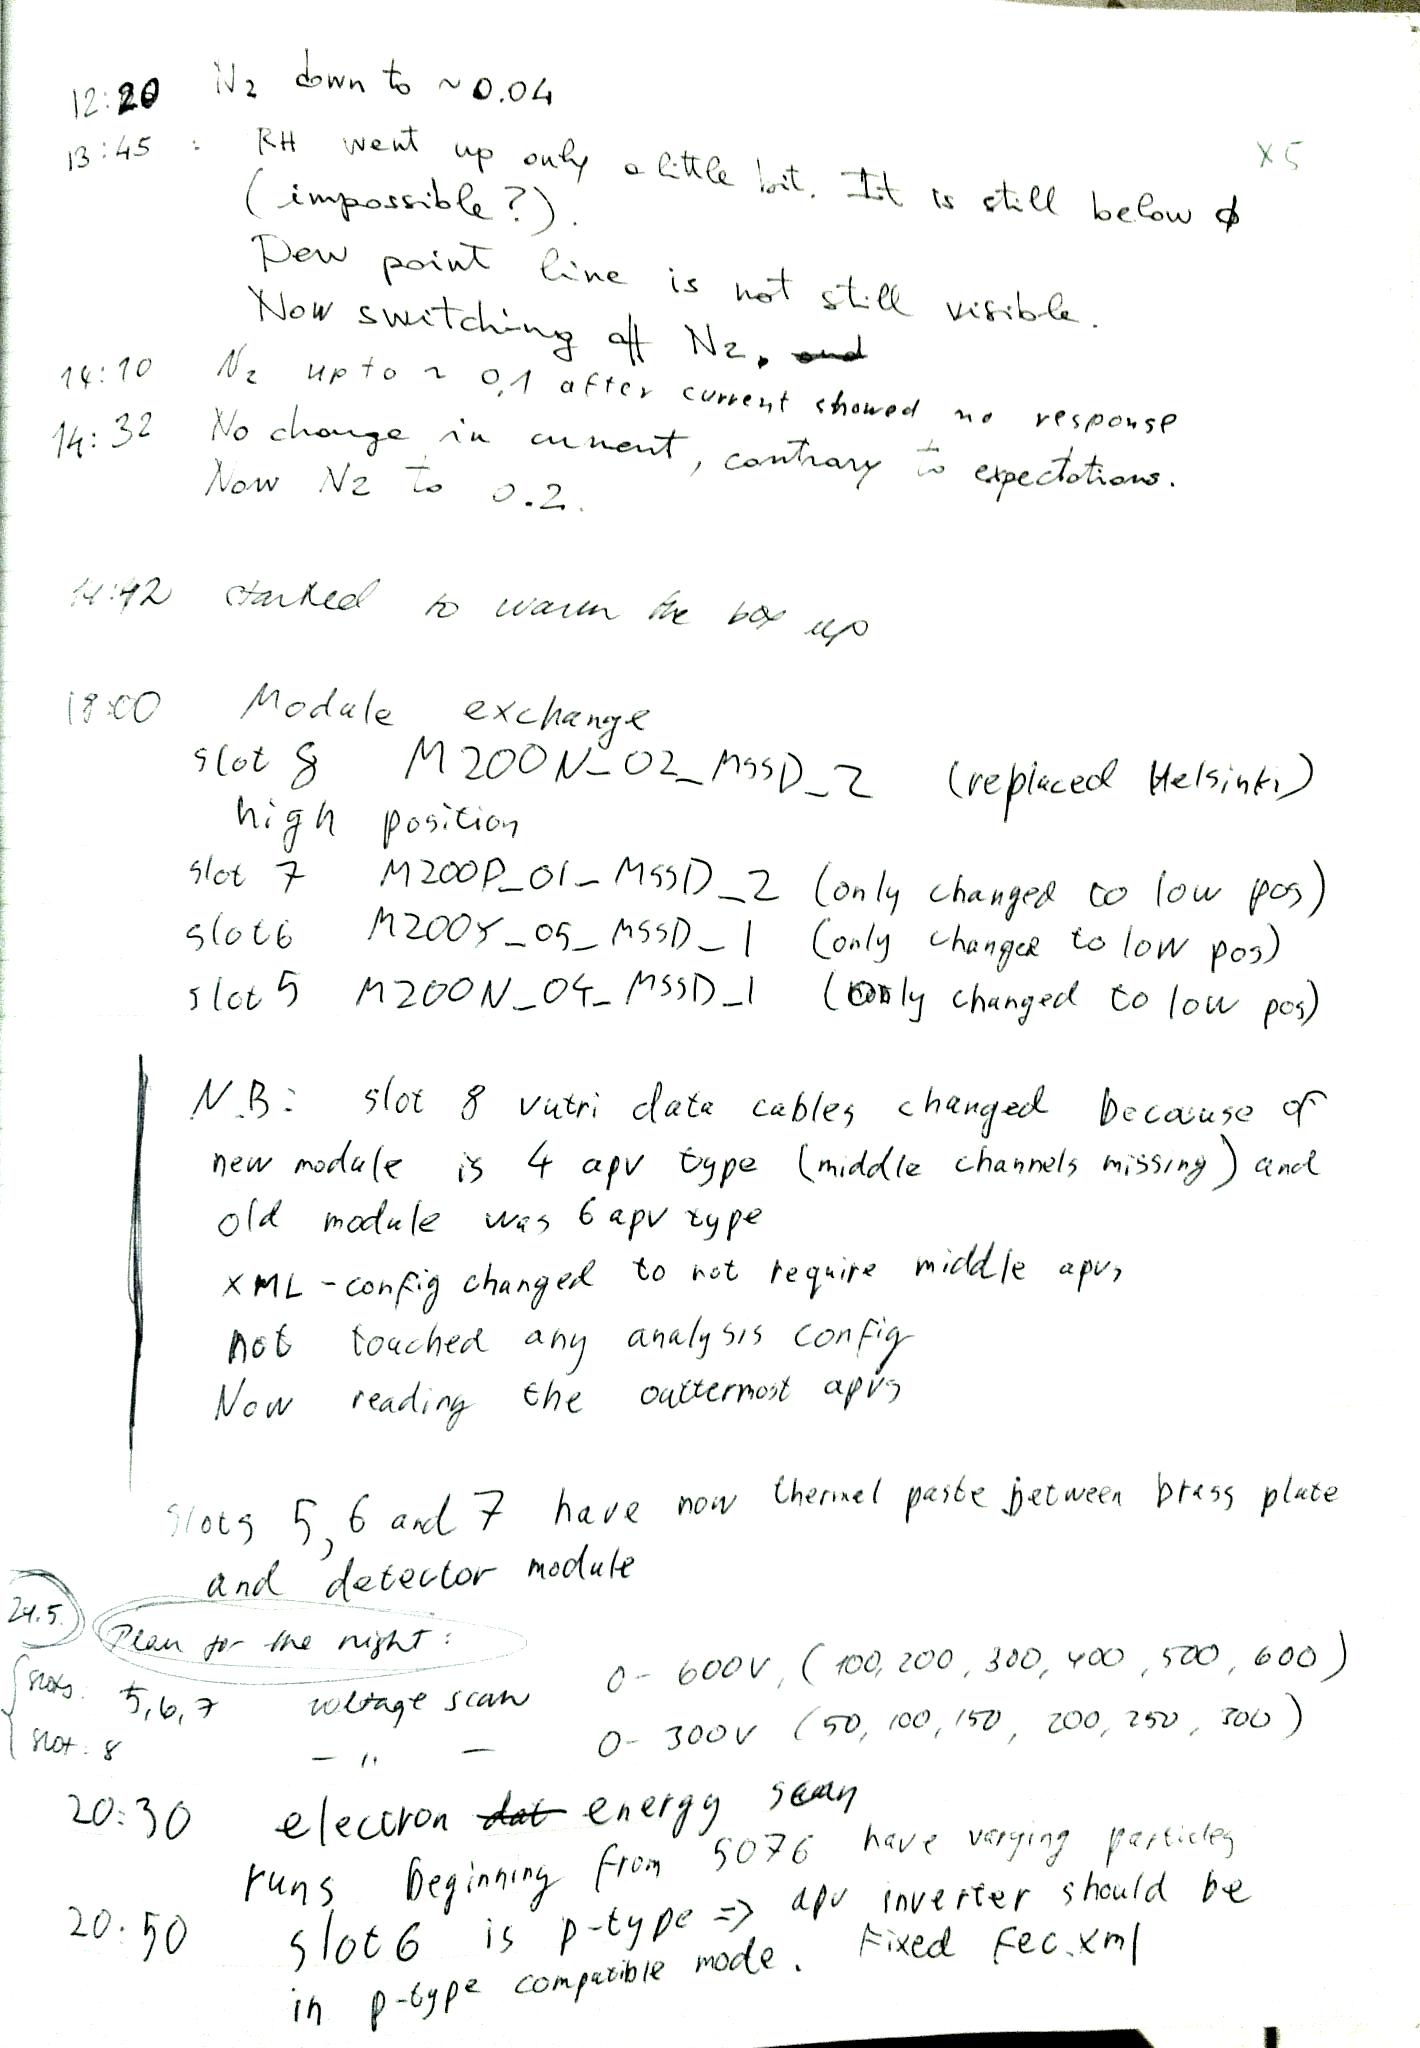 12:20 N2 down to ~0.04
x5
13:45 : RH went up only a little bit. It is still below 0
(impossible?).
Dew point line is not still visible.
Now switching off N2. and
14:10 N2 up to ~ 0,1 after current showed no response
14:32 No change in current, contrary to expectations.
Now N2 to 0.2.
14:42 started to warm the box up
18:00 Module exchange
slot 8 M200N_02_MSSD_2 (replaced Helsinki)
high position
slot 7 M200P_01_MSSD_2 (only changed to low pos)
slot 6 M200Y_05_MSSD_1 (only changed to low pos)
slot 5 M200N_04_MSSD_1 (only changed to low pos)
N.B: slot 8 vutri data cables changed because of
new module is 4 apv type (middle channels missing) and
old module was 6 apv type
XML-config changed to not require middle apvs
not touched any analysis config
Now reading the outtermost apvs
slots 5,6 and 7 have now thermel paste between brass plate
and detector module
24.5. Plan for the night:
slots: 5,6,7 voltage scan 0-600V, (100, 200, 300, 400, 500, 600)
slot: 8 - " - 0-300V (50, 100, 150, 200, 250, 300)
20:30 electron dat energy scan
runs beginning from 5076 have varying particles
20:50 slot 6 is p-type => apv inverter should be
in p-type compatible mode. Fixed fec.xml